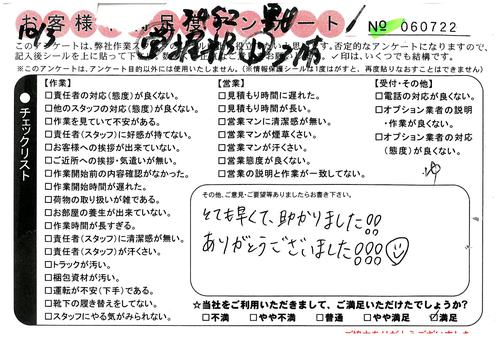 お客様満足度アンケート!
№ 060722
10/3
このアンケートは、弊社作業ス
たいです。否定的なアンケートになりますので、
記入後シールを上に貼って下
✓印は、いくつでも結構です。
※このアンケートは、アンケート目的以外には使用いたしません。(※情報保護シールは1度はがすと、再度貼りなおすことはできません)
チェックリスト
【作業】
□責任者の対応(態度)が良くない。
□他のスタッフの対応(態度)が良くない。
□作業を見ていて不安がある。
□責任者(スタッフ)に好感が持てない。
□お客様への挨拶が出来ていない。
□ご近所への挨拶・気遣いが無い。
□作業開始前の内容確認がなかった。
□作業開始時間が遅れた。
□荷物の取り扱いが雑である。
□お部屋の養生が出来ていない。
□作業時間が長すぎる。
□責任者(スタッフ)に清潔感が無い。
□責任者(スタッフ)が汗くさい。
□トラックが汚い。
□梱包資材が汚い。
□運転が不安(下手)である。
□靴下の履き替えをしてない。
□スタッフにやる気がみられない。
【営業】
□見積もり時間に遅れた。
□見積もり時間が長い。
□営業マンに清潔感が無い。
□営業マンが煙草くさい。
□営業マンが汗くさい。
□営業態度が良くない。
□営業の説明と作業が一致してない。
【受付・その他】
□電話の対応が良くない。
□オプション業者の説明
・作業が良くない。
□オプション業者の対応
(態度)が良くない。
その他、ご意見・ご要望等ありましたらお書き下さい。
とても早くて、助かりました!!
ありがとうございました!!!
☆当社をご利用いただきまして、ご満足いただけたでしょうか?
□不満 □やや不満 □普通 □やや満足 ☑満足
ご協力ありがとうございました